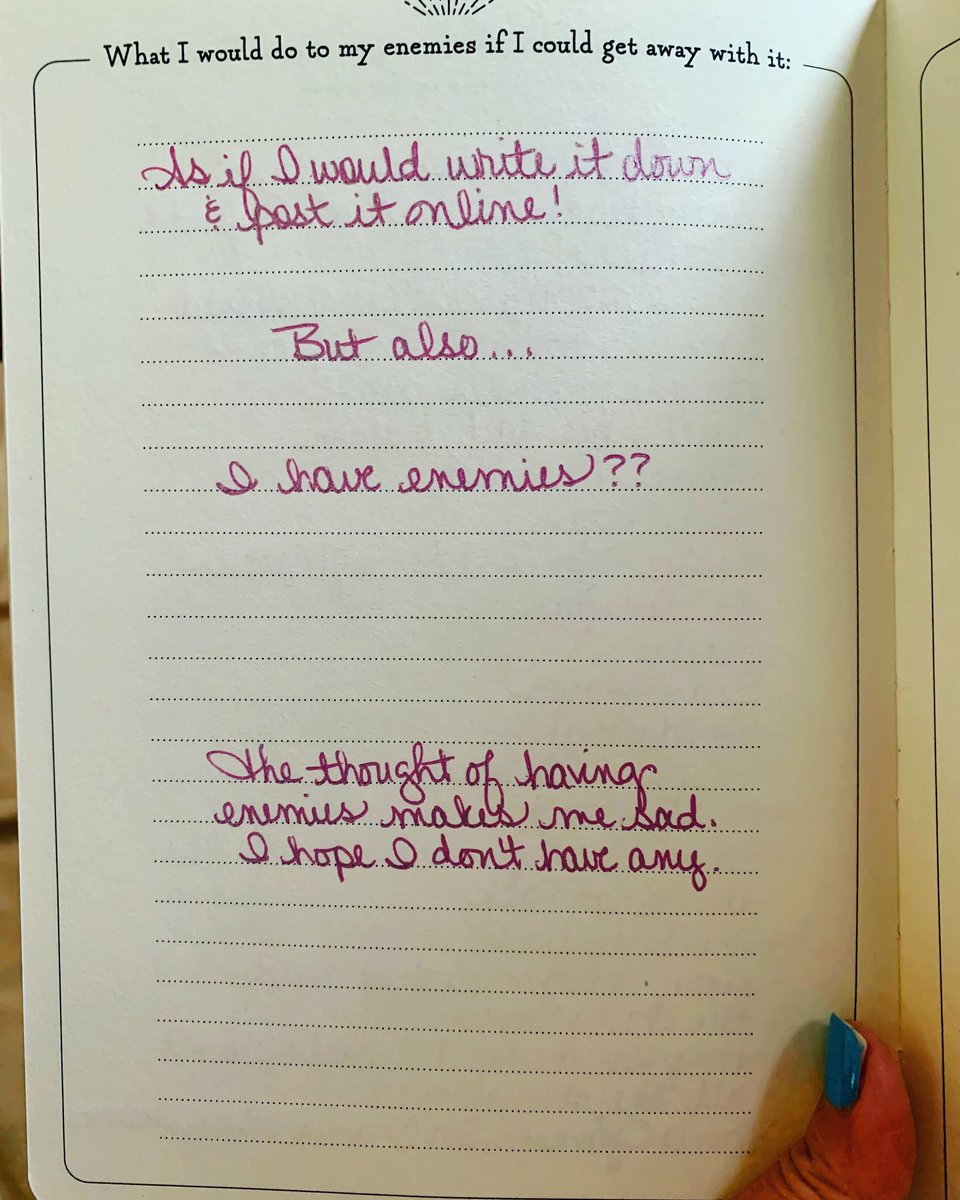 What I would do to my enemies if I could get away with it:
As if I would write it down
& post it online!
But also...
I have enemies??
The thought of having
enemies makes me sad.
I hope I don't have any.